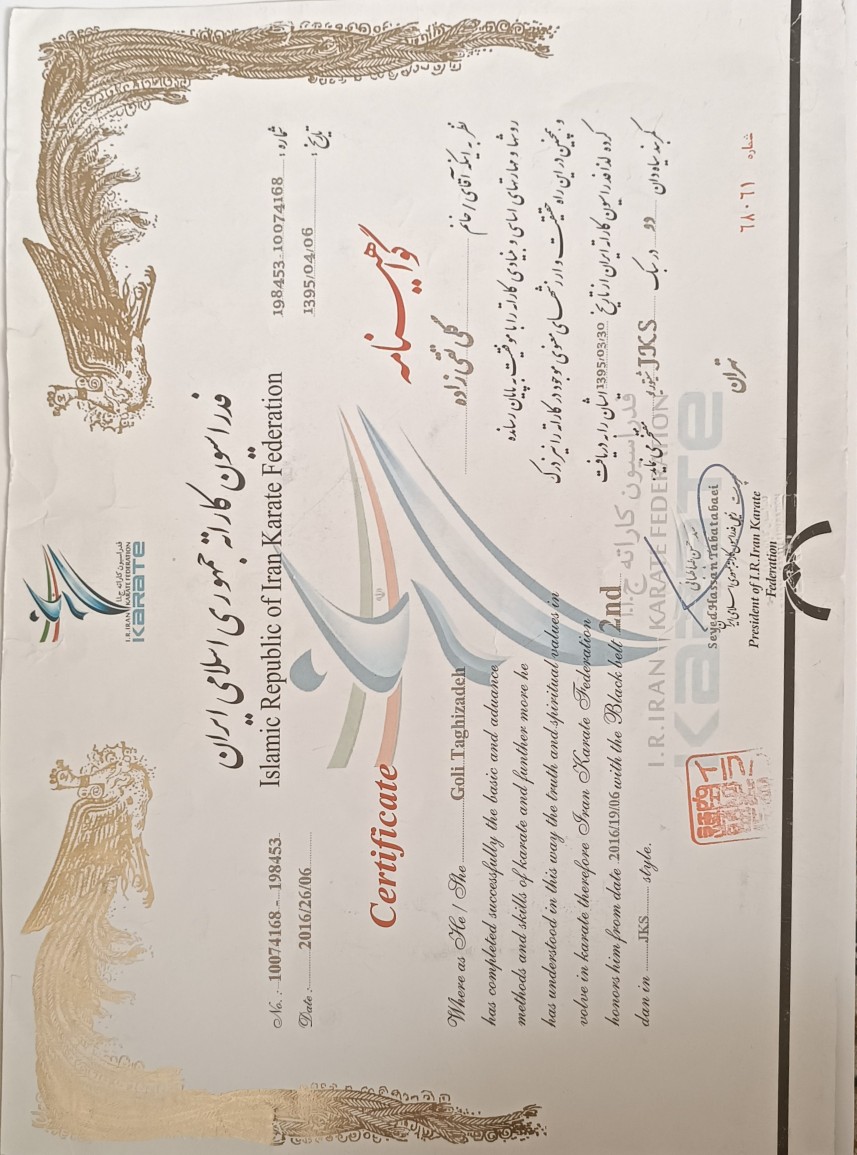 I.R.IRAN KARATE FEDERATION
فدراسیون کاراته ج.ا.ا
KARATE
فدراسیون کاراته جمهوری اسلامی ایران
Islamic Republic of Iran Karate Federation
No.: 10074168 - 198453
Date: 2016/26/06
شماره : 198453-10074168
تاریخ : 1395/04/06
Certificate
Where as He / She Goli Taghizadeh
has completed successfully the basic and aduance
methods and skills of karate and funther more he
has understood in this way the truth and spiritual values in
volve in karate therefore Iran Karate Federation
honors him from date 2016/19/06 with the Black belt 2nd
dan in JKS style.
گواهینامه
نظر به اینکه آقای / خانم گلی تقی زاده
روشها و مهارتهای اساسی و بنیادی کاراته را با موفقیت به پایان رسانده
و همچنین در این راه حقیقت و ارزشهای معنوی موجود در کاراته را نیز درک
کرده لذا فدراسیون کاراته ایران از تاریخ 1395/03/30 ایشان را به دریافت
کمربند سیاه دان دو در سبک JKS مفتخر می نماید.
فدراسیون کاراته ج.ا.ا
I.R.IRAN KARATE FEDERATION
KARATE
Seyed Hassan Tabatabaei
President of I.R.Iran Karate
Federation
تهران
شماره ۶۸۰۶۱